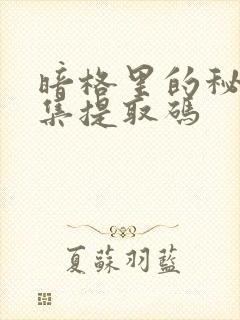 暗格里的秘
集提取碼
夏蘇羽藍